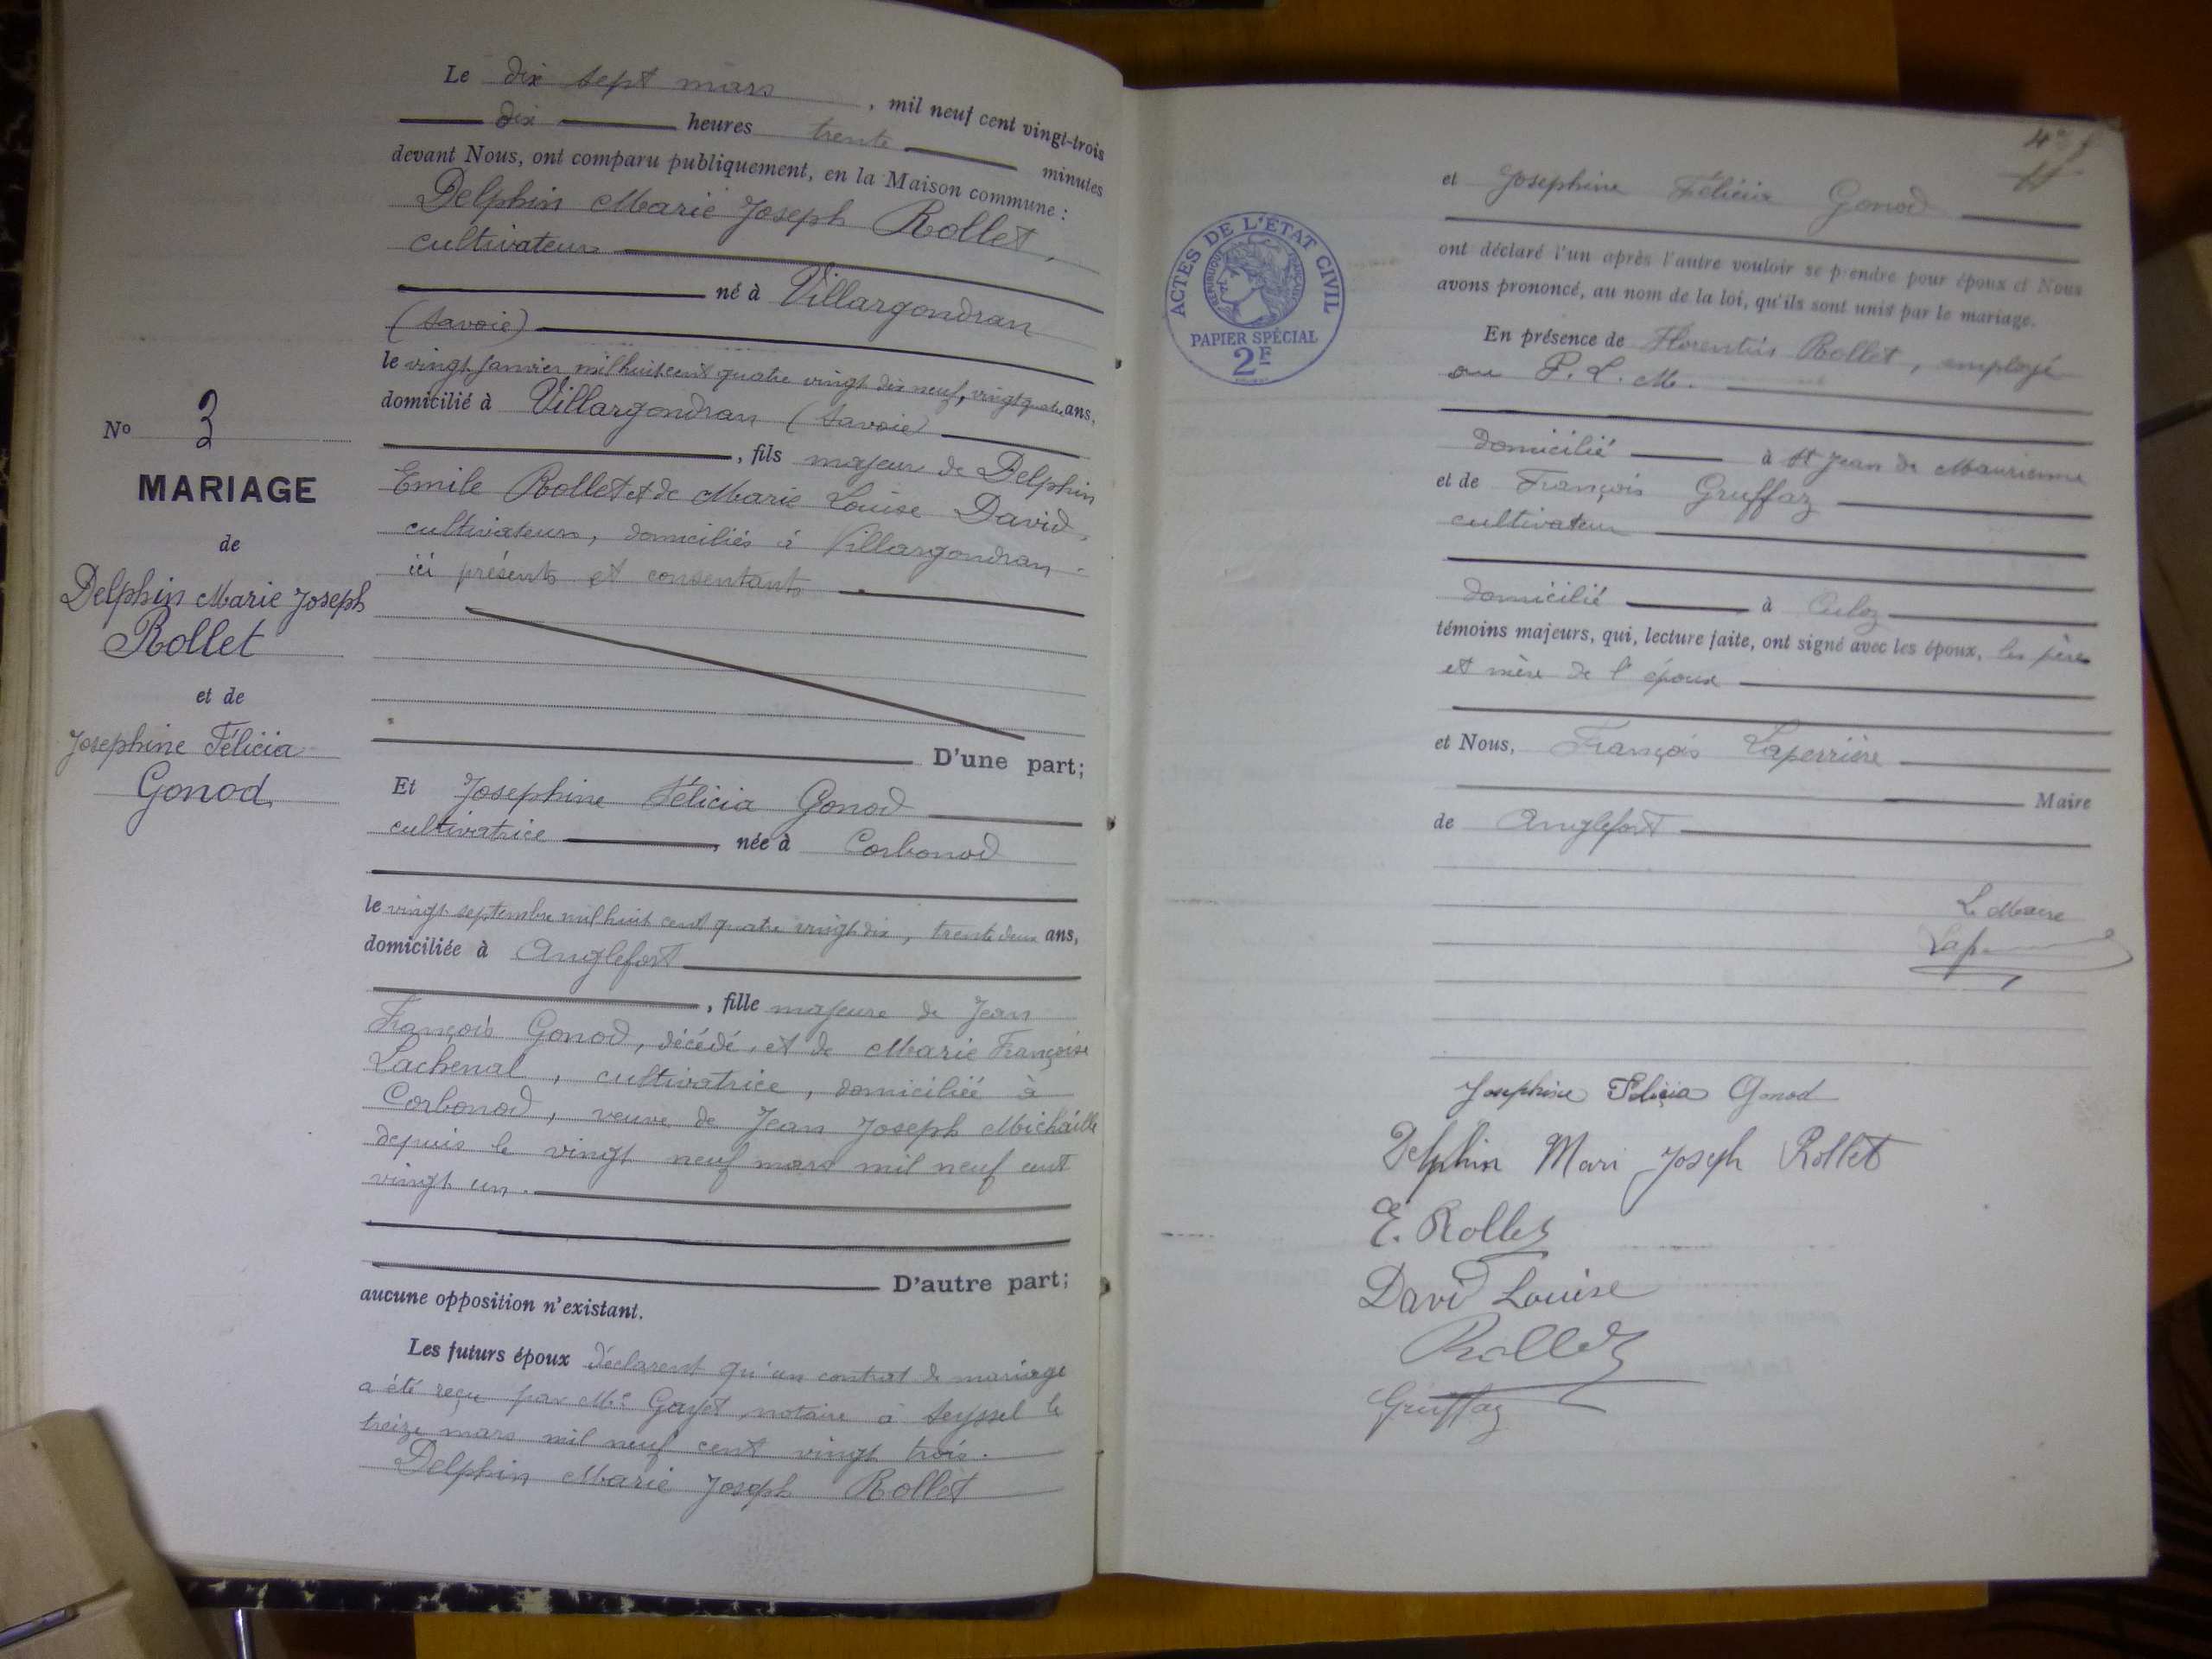 Le dix sept mars, mil neuf cent vingt-trois
dix heures trente minutes
devant Nous, ont comparu publiquement, en la Maison commune :
Delphin Marie Joseph Rollet,
cultivateur
né à Villargondran
(Savoie)
le vingt janvier mil huit cent quatre vingt dix neuf, vingt quatre ans,
domicilié à Villargondran (Savoie)
, fils majeur de Delphin
Emile Rollet et de Marie Louise David,
cultivateurs, domiciliés à Villargondran
ici présents et consentants
D'une part;
Et Josephine Félicia Gonod
cultivatrice, née à Corbonod
le vingt septembre mil huit cent quatre vingt dix, trente deux ans,
domiciliée à Anglefort
, fille majeure de Jean
François Gonod, décédé, et de Marie Françoise
Lachenal, cultivatrice, domiciliée à
Corbonod, veuve de Jean Joseph Michaille
depuis le vingt neuf mars mil neuf cent
vingt un.
D'autre part;
aucune opposition n'existant.
Les futurs époux déclarent qu'un contrat de mariage
a été reçu par Me Gayet, notaire à Seyssel le
treize mars mil neuf cent vingt trois.
Delphin Marie Joseph Rollet
No 3
MARIAGE
de
Delphin Marie Joseph
Rollet
et de
Josephine Félicia
Gonod
ACTES DE L'ÉTAT CIVIL
RÉPUBLIQUE FRANÇAISE
PAPIER SPÉCIAL
2F
et Josephine Félicia Gonod
ont déclaré l'un après l'autre vouloir se prendre pour époux et Nous
avons prononcé, au nom de la loi, qu'ils sont unis par le mariage.
En présence de Florentin Rollet, employé
au P. L. M.
domicilié à St Jean de Maurienne
et de François Gruffaz
cultivateur
domicilié à Culoz
témoins majeurs, qui, lecture faite, ont signé avec les époux, les père
et mère de l'époux
et Nous, François Laperrière
Maire
de Anglefort
Le Maire
Josephine Felicia Gonod
Delphin Mari Joseph Rollet
E. Rollet
David Louise
Rollet
Gruffaz